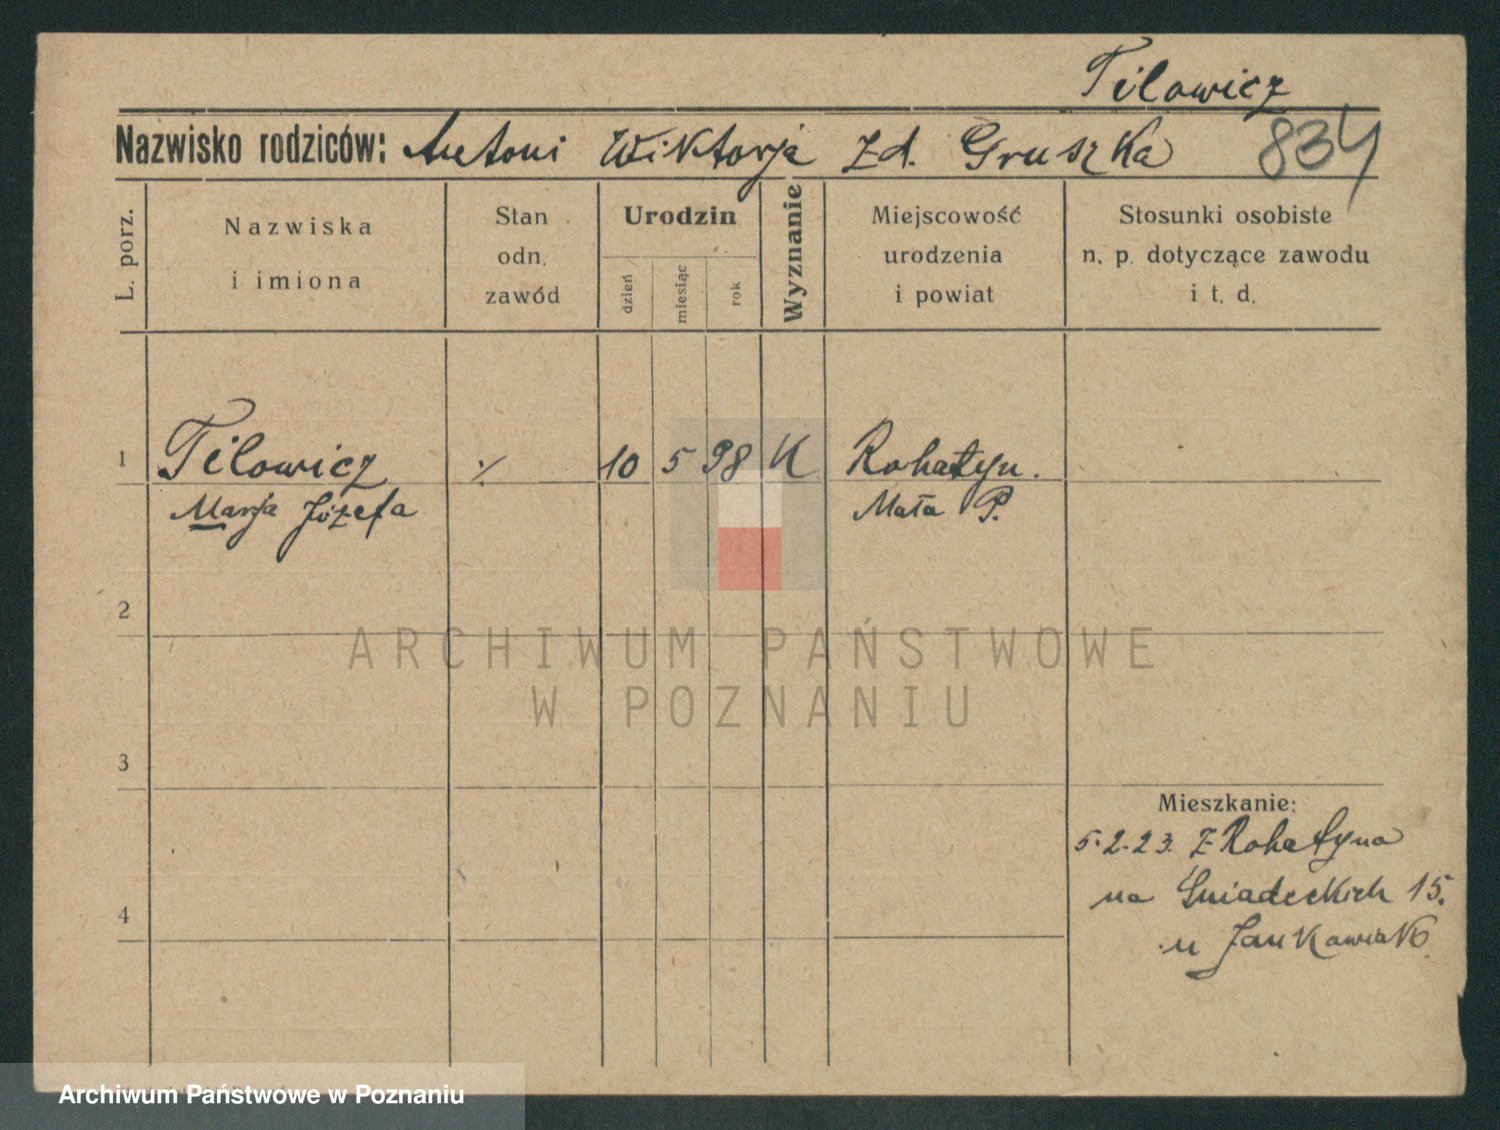 Tilowicz
Nazwisko rodziców: Antoni Wiktorja zd. Gruszka 834
L. porz.
Nazwiska
i imiona
Stan
odn.
zawód
Urodzin
dzień
miesiąc
rok
Wyznanie
Miejscowość
urodzenia
i powiat
Stosunki osobiste
n. p. dotyczące zawodu
i t. d.
1 Tilowicz ./. 10 5 98 K Rohatyn.
Marja Józefa Mała P.
2
ARCHIWUM PAŃSTWOWE
W POZNANIU
3
Mieszkanie:
5.2.23. z Rohatyna
na Śniadeckich 15.
4
u Jankowiak
Archiwum Państwowe w Poznaniu